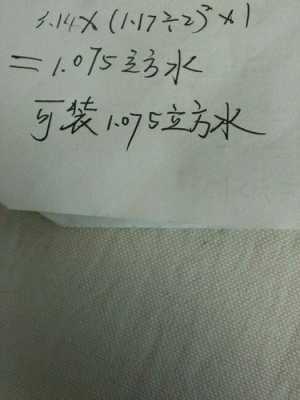 3.14×(1.17÷2)²×1
=1.075立方水
可装1.075立方水